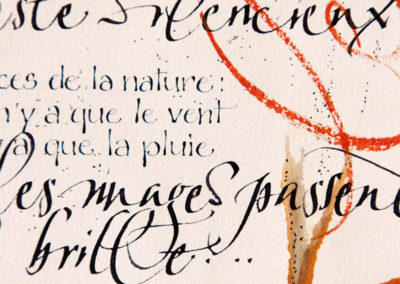 este silencieux
ces de la nature:
n'y a que le vent
y a que la pluie
les nuages passent
brille...